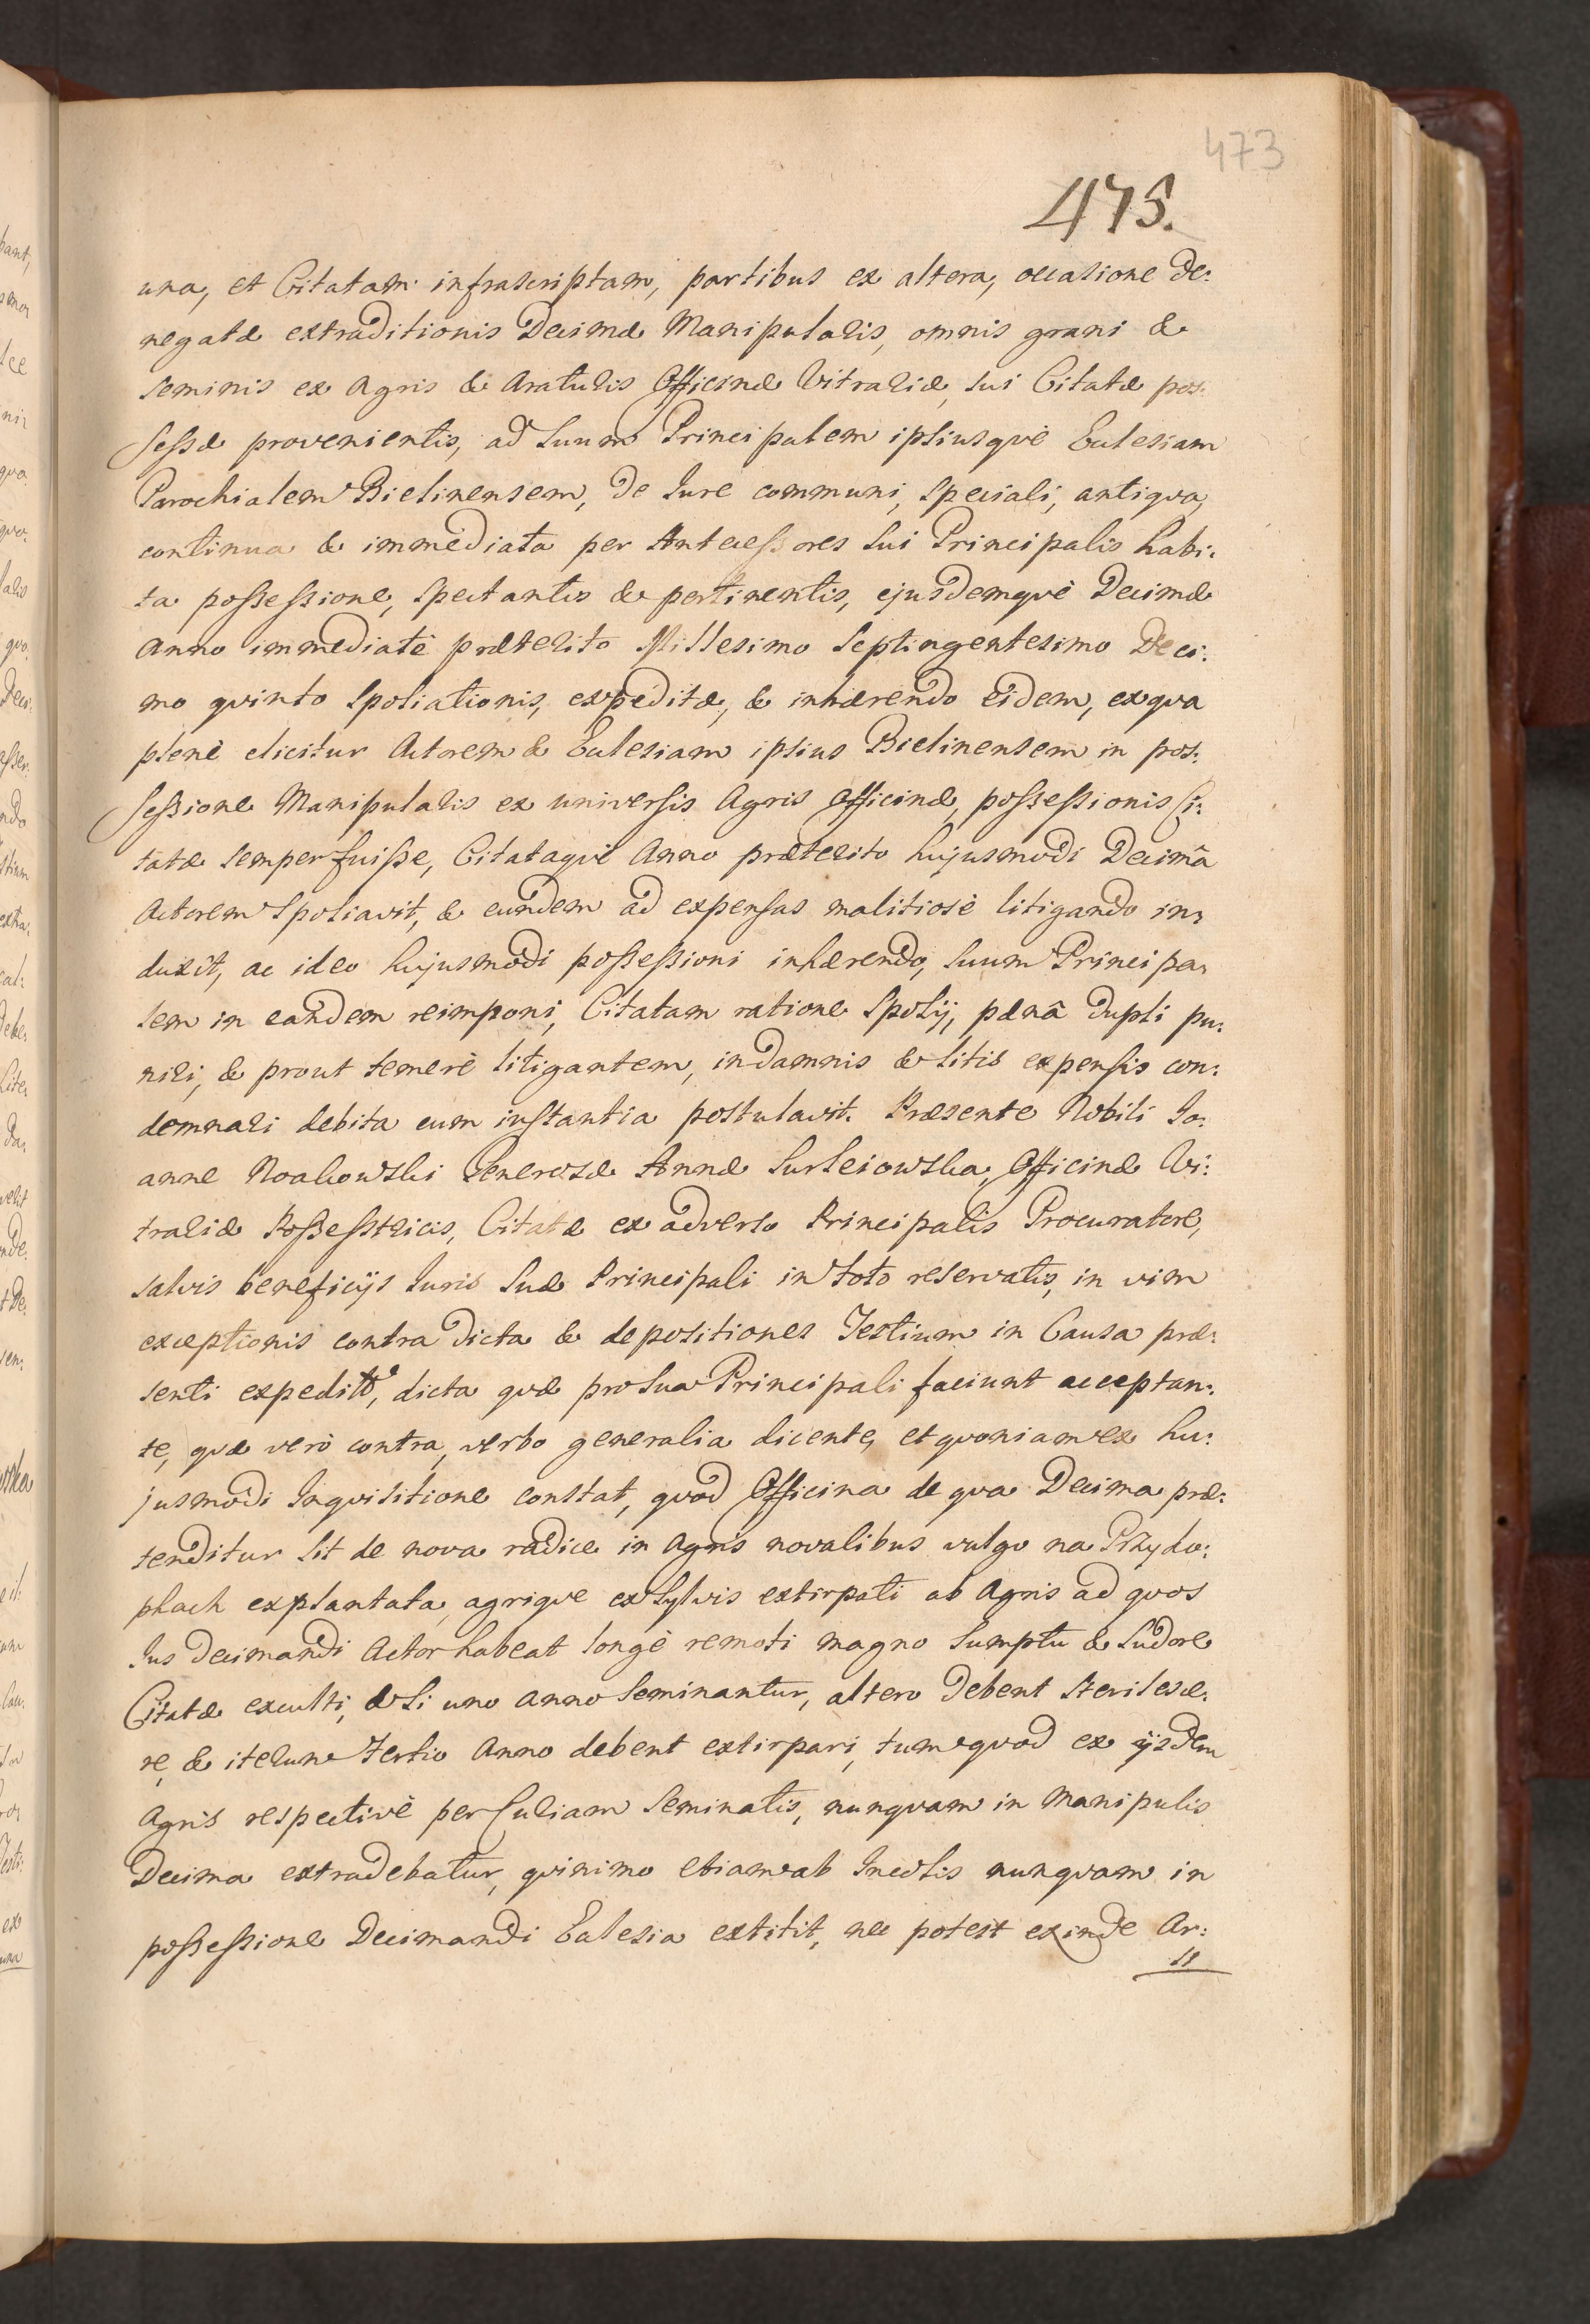 473
475.
una, et Citatam infrascriptam, partibus ex altera, occasione de:
negatæ extraditionis Decimæ Manipularis, omnis grani &
seminis ex Agris & Araturis Officinæ Vitraliæ, sui Citatæ pos:
sessæ provenientis, ad suum Principalem ipsiusqvè Ecclesiam
Parochialem Bielinensem, de Jure communi, speciali, antiqva,
continua & immediata per Antecessores sui Principalis habi:
ta possessione, spectantis & pertinentis, ejusdemqvè Decimæ
Anno immediatè præterito Millesimo Septingentesimo Deci:
mo qvinto spoliationis, expeditæ, & inhærendo eidem, ex qva
plenè elicitur Actorem & Ecclesiam ipsius Bielinensem in pos:
sessione Manipularis ex universis Agris Officinæ, possessionis Ci:
tatæ semper fuisse, Citataqvè Anno præterito hujusmodi Decimâ
Actorem spoliavit, & eundem ad expensas malitiosè litigando in:
duxit, ac ideo hujusmodi possessioni inhærendo, suum Principa:
lem in eandem reimponi, Citatam ratione spolij, pænâ dupli pu:
niri, & prout temerè litigantem, in damnis & litis expensis con:
demnari debita cum instantia postulavit. Præsente Nobili Jo:
anne Noakowski Generosæ Annæ Officinæ Vi:
traliæ Possesstricis, Citatæ ex adverso Principalis Procuratore,
salvis beneficijs Juris suæ Principali in toto reservatis, in vim
exceptionis contra dicta & depositiones Testium in Causa præ:
senti expedit, dicta qvæ pro sua Principali faciunt acceptan:
te, qvæ verò contra, verbo generalia dicente, et qvoniam ex hu:
jusmodi Inqvisitione constat, qvod Officina de qva Decima præ:
tenditur sit de nova radice in agris novalibus vulgo na Przydo:
phach explantata, agriqve ex sylvis extirpati ab Agris ad qvos
Jus decimandi Actor habeat longè remoti magno sumptu & sudore
Citatæ exculti, & si uno anno seminantur, altero debent sterilesce:
re, & iterum tertio Anno debent extirpari, tum qvod ex ijsdem
Agris respectivè per Curiam seminatis, nunqvam in Manipulis
Decima extradebatur, qvinimo etiam ab Incolis nunqvam in
possessione Decimandi Ecclesia extitit, nec potest exinde Ar: